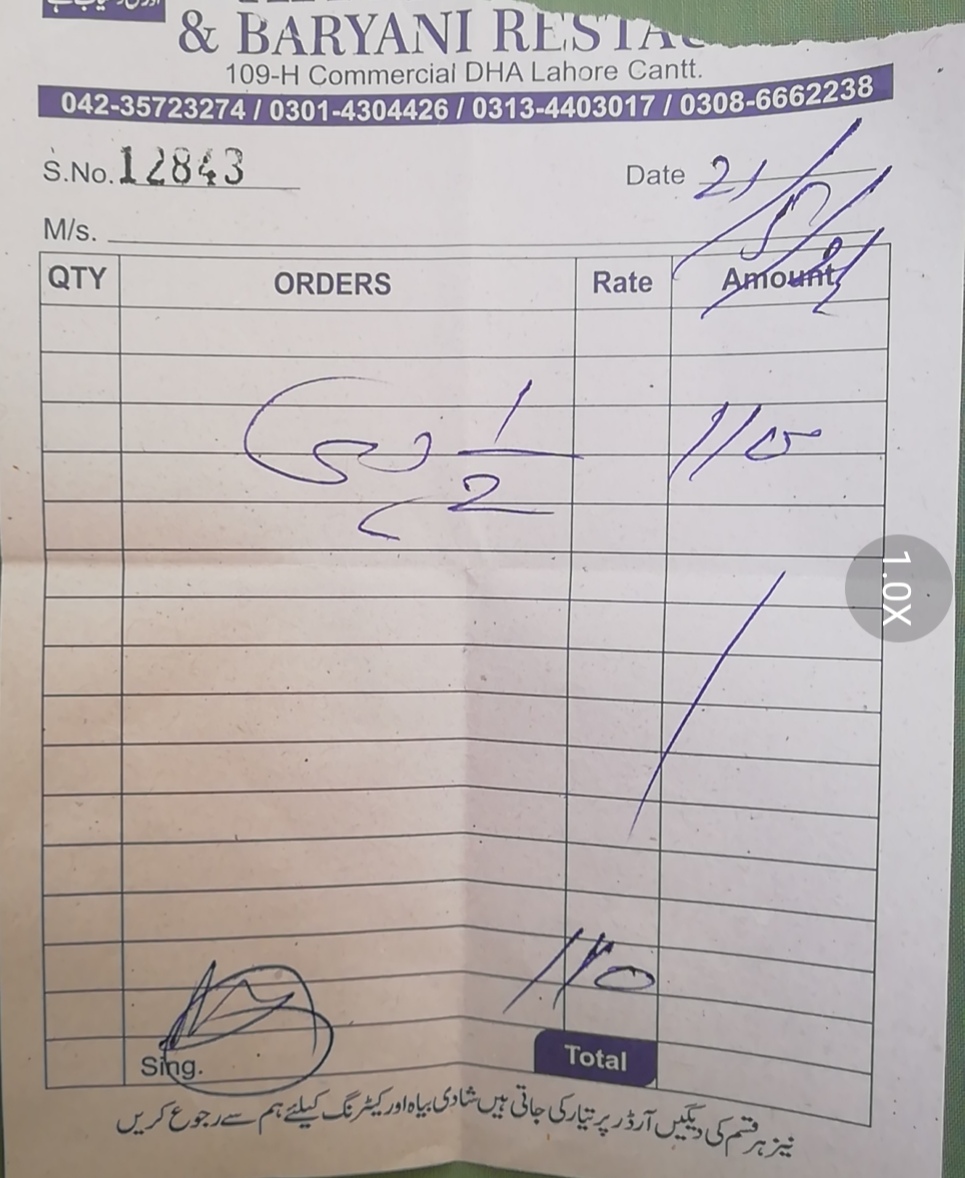 & BARYANI RESTAU
109-H Commercial DHA Lahore Cantt.
042-35723274 / 0301-4304426 / 0313-4403017 / 0308-6662238
S.No. 12843
Date 21/
M/s.
QTY ORDERS Rate Amount
1/2 110
110
Total
Sing.
نیز ہر قسم کی دیگیں آرڈر پر تیار کی جاتی ہیں شادی بیاہ اور کیٹرنگ کیلئے ہم سے رجوع کریں
1.0X